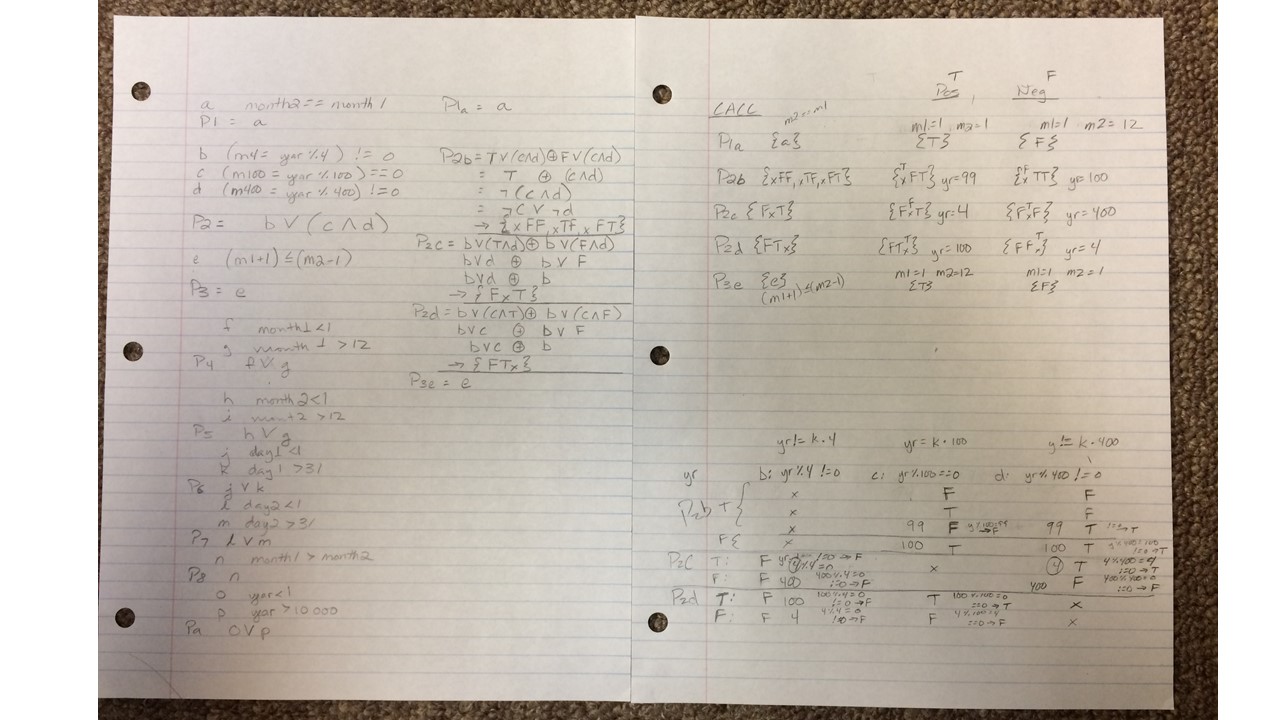 a month2 == month1
P1 = a
b (m4 = year % 4) != 0
c (m100 = year % 100) == 0
d (m400 = year % 400) != 0
P2 = b ∨ (c ∧ d)
e (m1+1) ≤ (m2-1)
P3 = e
f month1 < 1
g month1 > 12
P4 f ∨ g
h month2 < 1
i mont2 > 12
P5 h ∨ g
j day1 < 1
k day1 > 31
P6 j ∨ k
l day2 < 1
m day2 > 31
P7 l ∨ m
n month1 > month2
P8 n
o year < 1
p year > 10000
Pa O ∨ p
P1a = a
P2b = T ∨ (c ∧ d) ⊕ F ∨ (c ∧ d)
= T ⊕ (c ∧ d)
= ¬(c ∧ d)
= ¬c ∨ ¬d
→ {xFF, xTF, xFT}
P2c = b ∨ (T ∧ d) ⊕ b ∨ (F ∧ d)
b ∨ d ⊕ b ∨ F
b ∨ d ⊕ b
→ {FxT}
P2d = b ∨ (c ∧ T) ⊕ b ∨ (c ∧ F)
b ∨ c ⊕ b ∨ F
b ∨ c ⊕ b
→ {FTx}
P3e = e
T F
CACC Pos Neg
m2 == m1
m1=1 m2=1 m1=1 m2=12
P1a {a} {T} {F}
P2b {xFF, xTF, xFT} {xFT} T yr=99 {xTT} F yr=100
P2c {FxT} {FxT} F yr=4 {FxF} T yr=400
P2d {FTx} {FTx} T yr=100 {FFx} T yr=4
P3e {e} m1=1 m2=12 m1=1 m2=1
(m1+1) ≤ (m2-1) {T} {F}
yr != k·4 yr = k·100 y != k·400
yr b: yr % 4 != 0 c: yr % 100 == 0 d: yr % 400 != 0
P2b T { x F F
x T F
x 99 F 99 T
F { x 100 T 100 T
P2c T: F 4%4=0 !=0 → F x 4 T 4%400=4 !=0 → T
F: F 400 400%4=0 !=0 → F 400 F 400%400=0 !=0 → F
P2d T: F 100 100%4=0 !=0 → F T 100%100=0 ==0 → T x
F: F 4 4%4=0 !=0 → F F 4%100=4 ==0 → F x